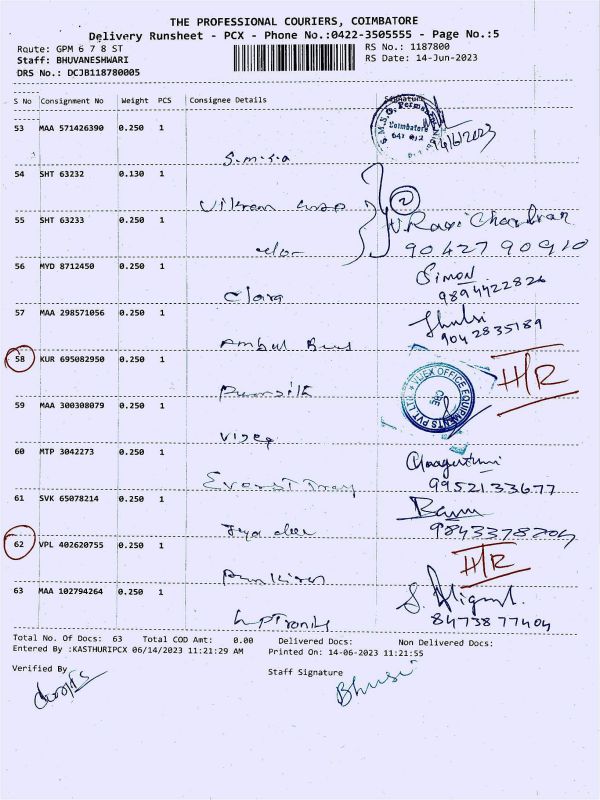 THE PROFESSIONAL COURIERS, COIMBATORE
Delivery Runsheet - PCX - Phone No.:0422-3505555 - Page No.:5
Route: GPM 6 7 8 ST
RS No.: 1187800
Staff: BHUVANESHWARI
RS Date: 14-Jun-2023
DRS No.: DCJB118780005
S No Consignment No Weight PCS Consignee Details Signature
53 MAA 571426390 0.250 1
Coimbatore
641 012
14/6/2023
S.m.s.a
54 SHT 63232 0.130 1
Vikram
2
55 SHT 63233 0.250 1
V. Ravi Chandran
90427 90910
56 MYD 8712450 0.250 1
Simon
9894422826
Clara
57 MAA 298571056 0.250 1
9042835189
Ambal
58 KUR 695082950 0.250 1
H/R
VIJEX OFFICE EQUIPMENTS PVT. LTD.
CBE
59 MAA 300308079 0.250 1
60 MTP 3042273 0.250 1
9952133677
Everest
61 SVK 65078214 0.250 1
62 VPL 402620755 0.250 1
H/R
63 MAA 102794264 0.250 1
8473877404
Total No. Of Docs: 63 Total COD Amt: 0.00 Delivered Docs: Non Delivered Docs:
Entered By :KASTHURIPCX 06/14/2023 11:21:29 AM Printed On: 14-06-2023 11:21:55
Verified By
Staff Signature
Bhusi